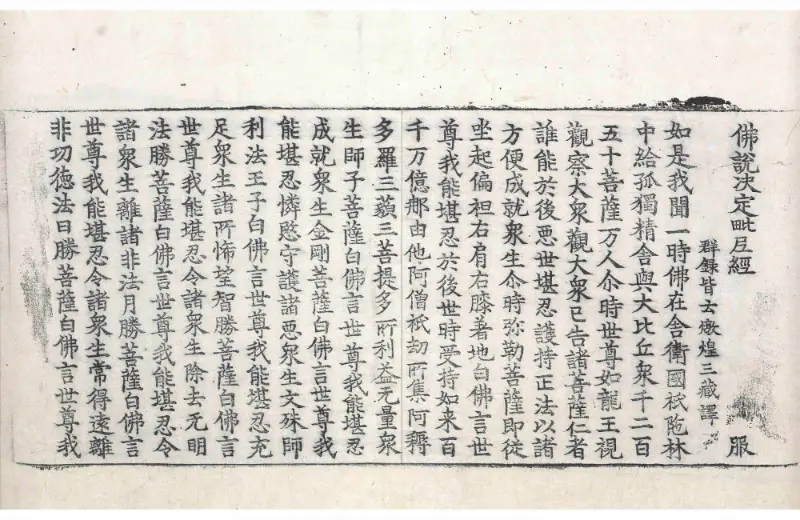 佛說決定毗尼經 服
群錄皆云燉煌三藏譯
如是我聞一時佛在舍衛國祇陁林
中給孤獨精舍與大比丘衆千二百
五十菩薩万人尒時世尊如龍王視
觀察大衆觀大衆已告諸菩薩仁者
誰能於後悪世堪忍護持正法以諸
方便成就衆生尒時弥勒菩薩即從
坐起偏袒右肩右膝著地白佛言世
尊我能堪忍於後世時受持如来百
千万億那由他阿僧祇劫所集阿耨
多羅三藐三菩提多所利益无量衆
生師子菩薩白佛言世尊我能堪忍
成就衆生金剛菩薩白佛言世尊我
能堪忍憐愍守護諸悪衆生文殊師
利法王子白佛言世尊我能堪忍充
足衆生諸所悕望智勝菩薩白佛言
世尊我能堪忍令諸衆生除去无明
法勝菩薩白佛言世尊我能堪忍令
諸衆生離諸非法月勝菩薩白佛言
世尊我能堪忍令諸衆生常得遠離
非功徳法日勝菩薩白佛言世尊我